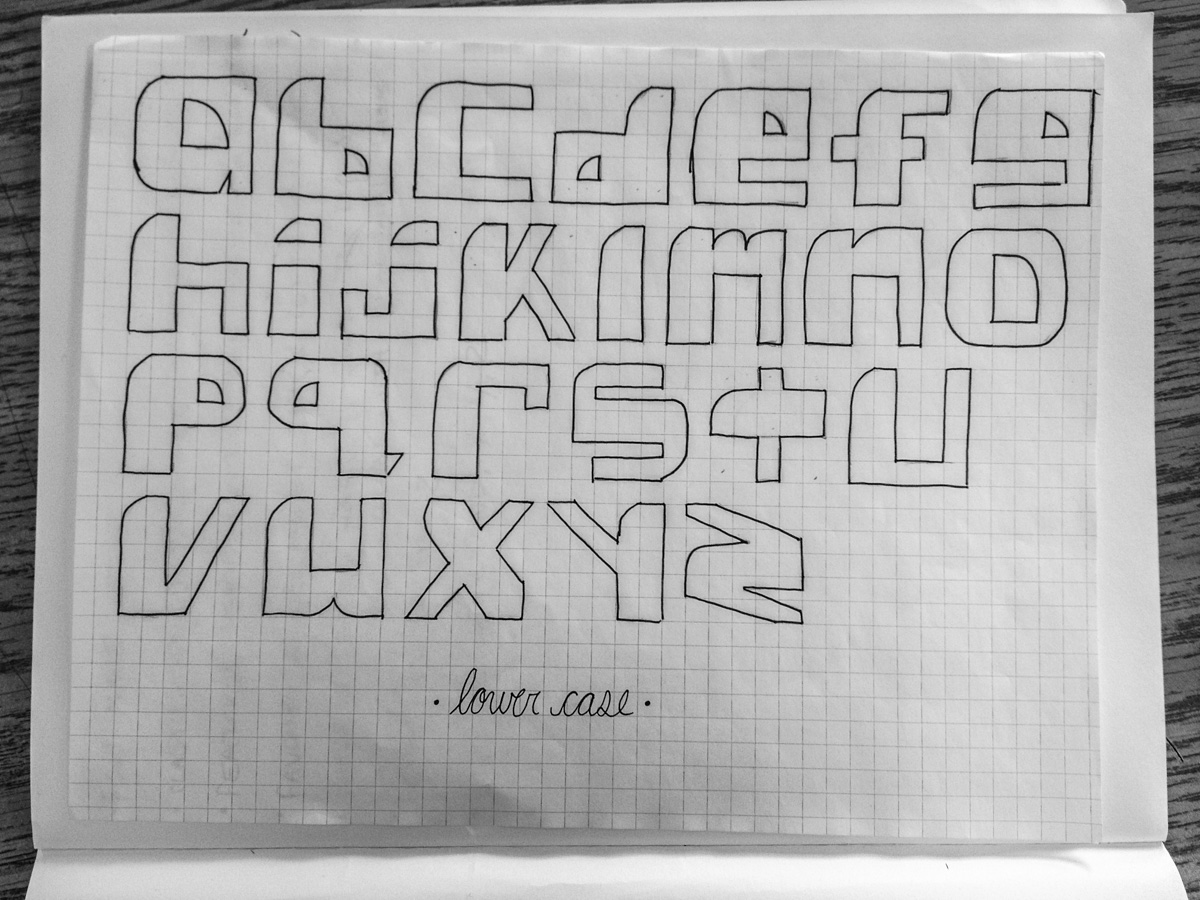 abcdefg
hijklmno
pqrstu
vwxyz
. lower case .